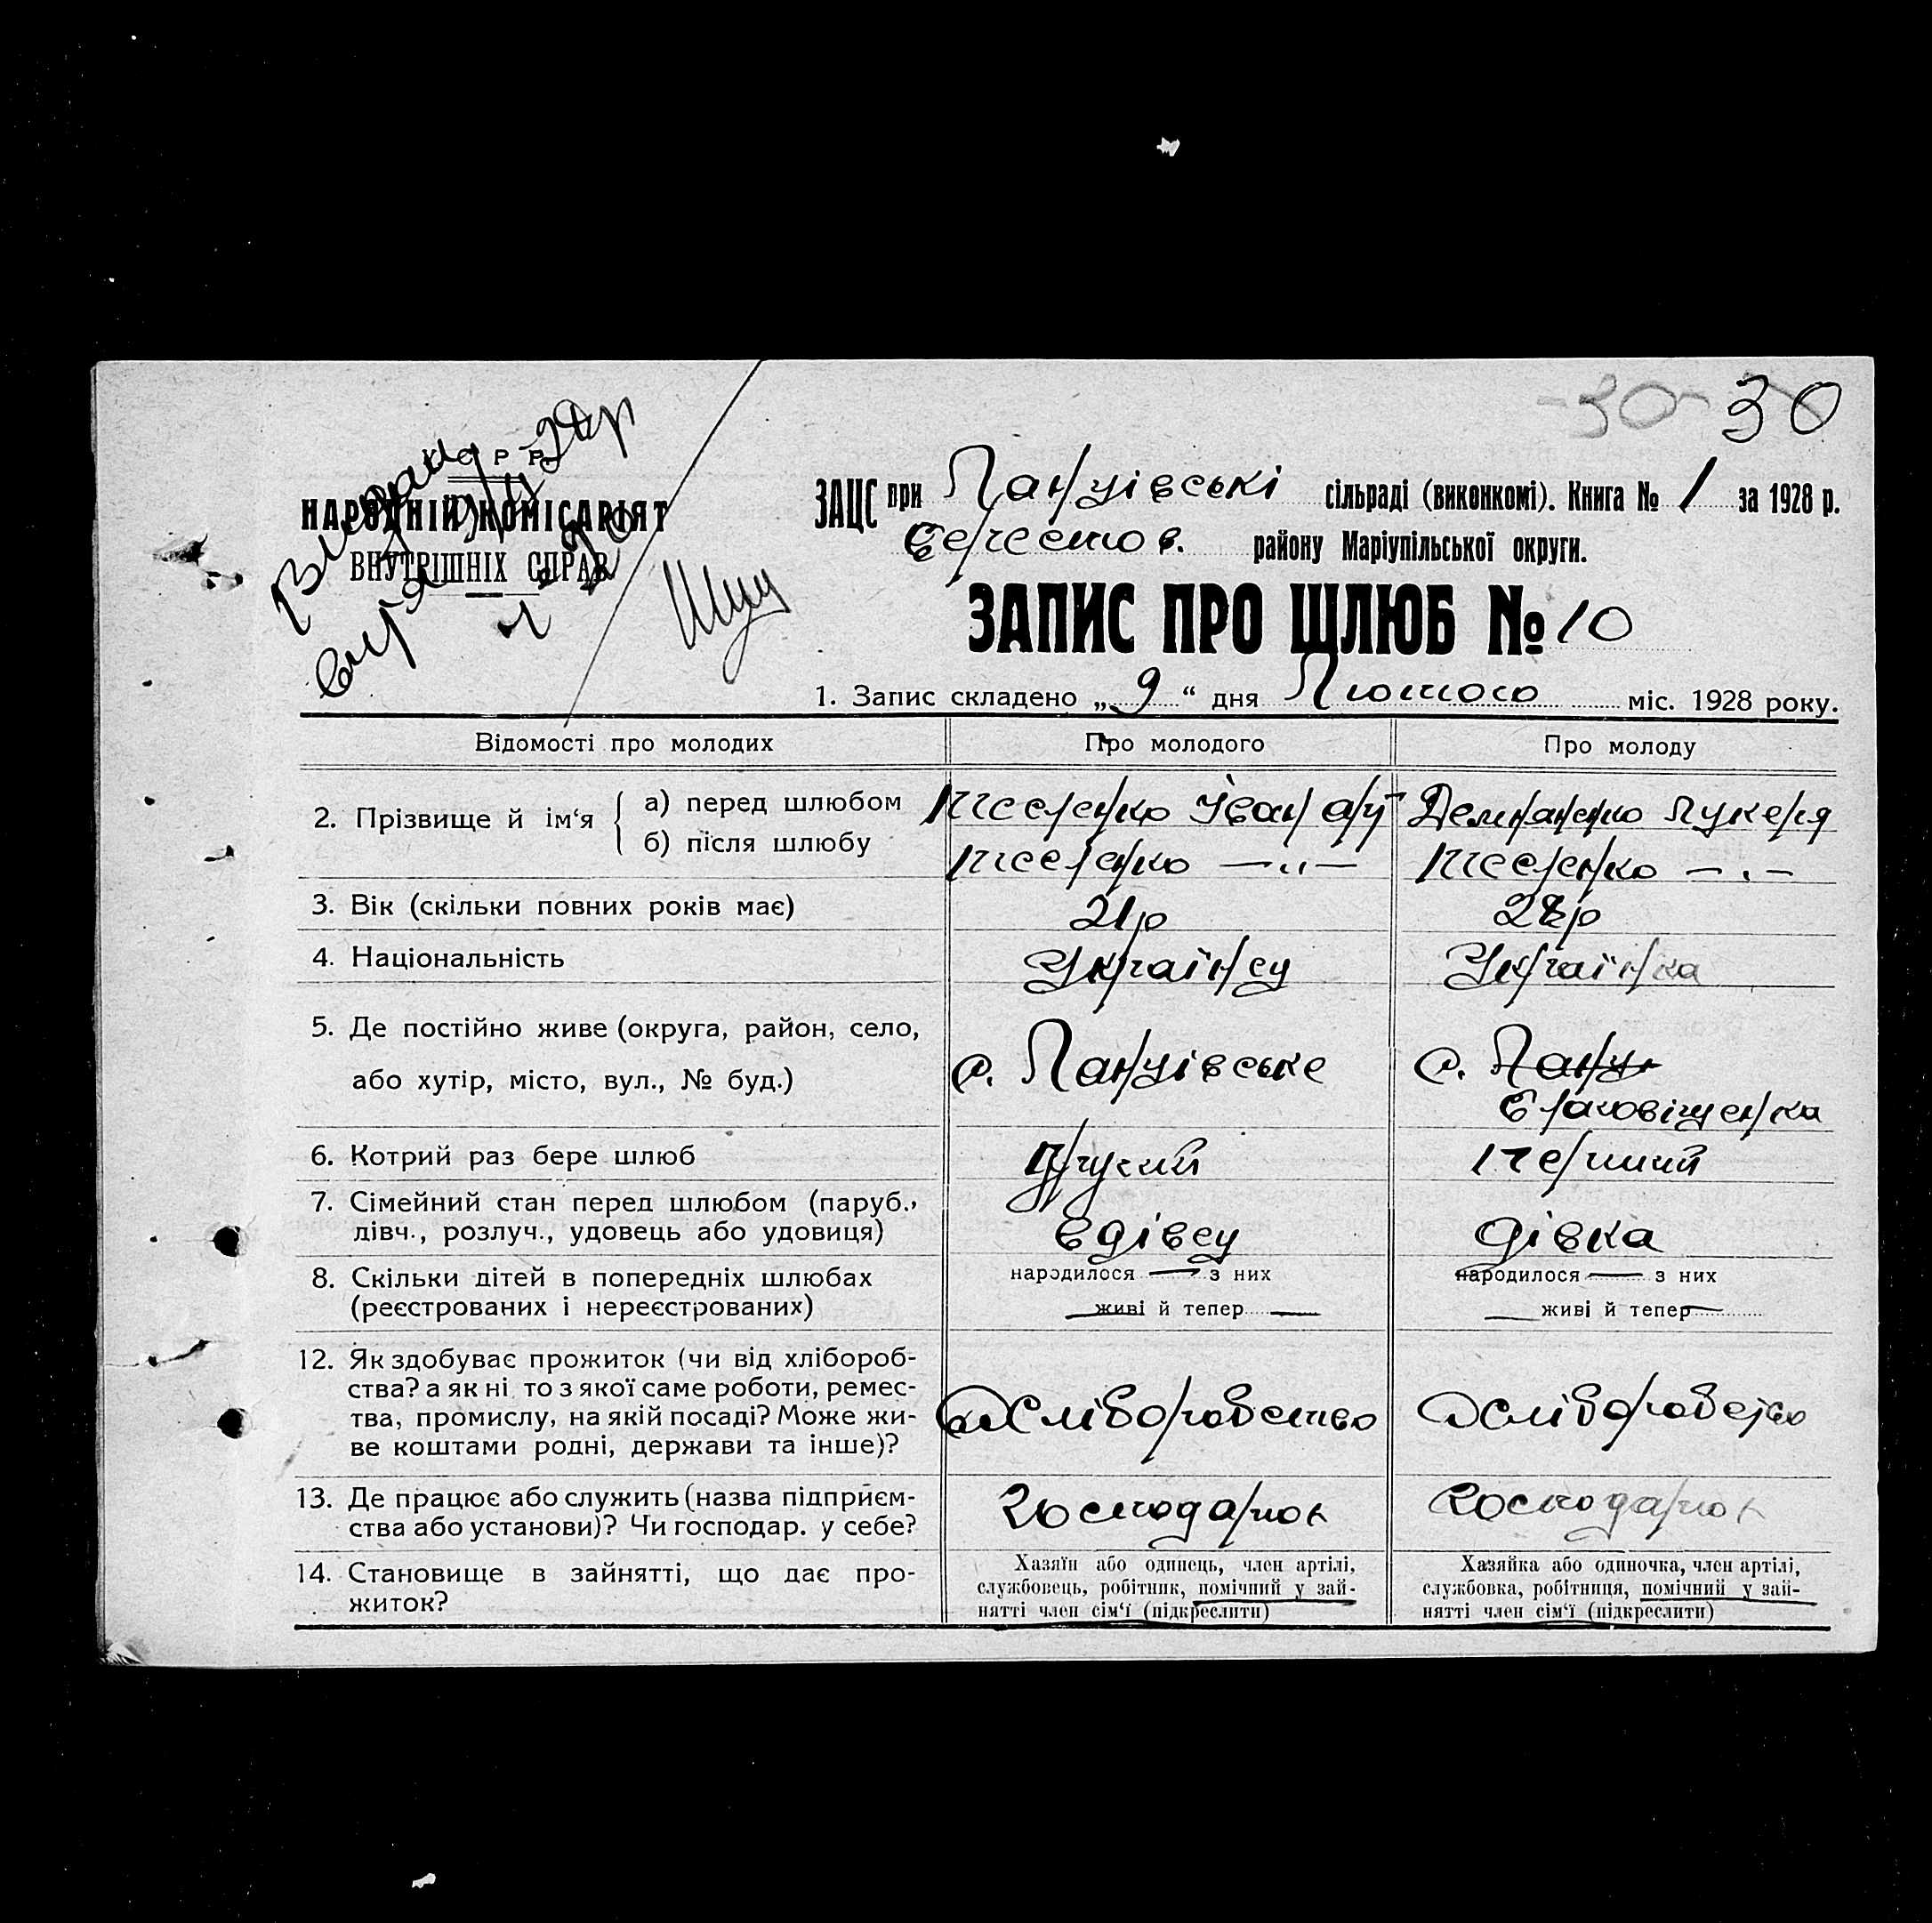 30 30
У С Р Р
НАРОДНІЙ КОМІСАРІЯТ
ВНУТРІШНІХ СПРАВ
ЗАЦС при Ланцівські сільраді (виконкомі). Книга № 1 за 1928 р.
району Маріупільської округи.
ЗАПИС ПРО ШЛЮБ № 10
1. Запис складено „ 9 “ дня Лютого міс. 1928 року.
Відомості про молодих Про молодого Про молоду
2. Прізвище й ім‘я а) перед шлюбом Іван Лукеря
б) після шлюбу — „ — — „ —
3. Вік (скільки повних років має) 21р
4. Національність Українец Українка
5. Де постійно живе (округа, район, село, с. Ланцівське с. Ланц
або хутір, місто, вул., № буд.)
6. Котрий раз бере шлюб Другий Перший
7. Сімейний стан перед шлюбом (паруб., вдівец дівка
дівч., розлуч., удовець або удовиця)
8. Скільки дітей в попередніх шлюбах народилося — з них народилося — з них
(реєстрованих і нереєстрованих) — живі й тепер — — живі й тепер —
12. Як здобуває прожиток (чи від хлібороб-
ства? а як ні то з якої саме роботи, ремес-
тва, промислу, на якій посаді? Може жи- Хліборобство Хліборобство
ве коштами родні, держави та інше)?
13. Де працює або служить (назва підприєм- господарює господарює
ства або установи)? Чи господар. у себе?
14. Становище в зайнятті, що дає про-
житок?
Хазяїн або одинець, член артілі,
службовець, робітник, помічний у зай-
нятті член сім‘ї (підкреслити)
Хазяйка або одиночка, член артілі,
службовка, робітниця, помічний у зай-
нятті член сім‘ї (підкреслити)